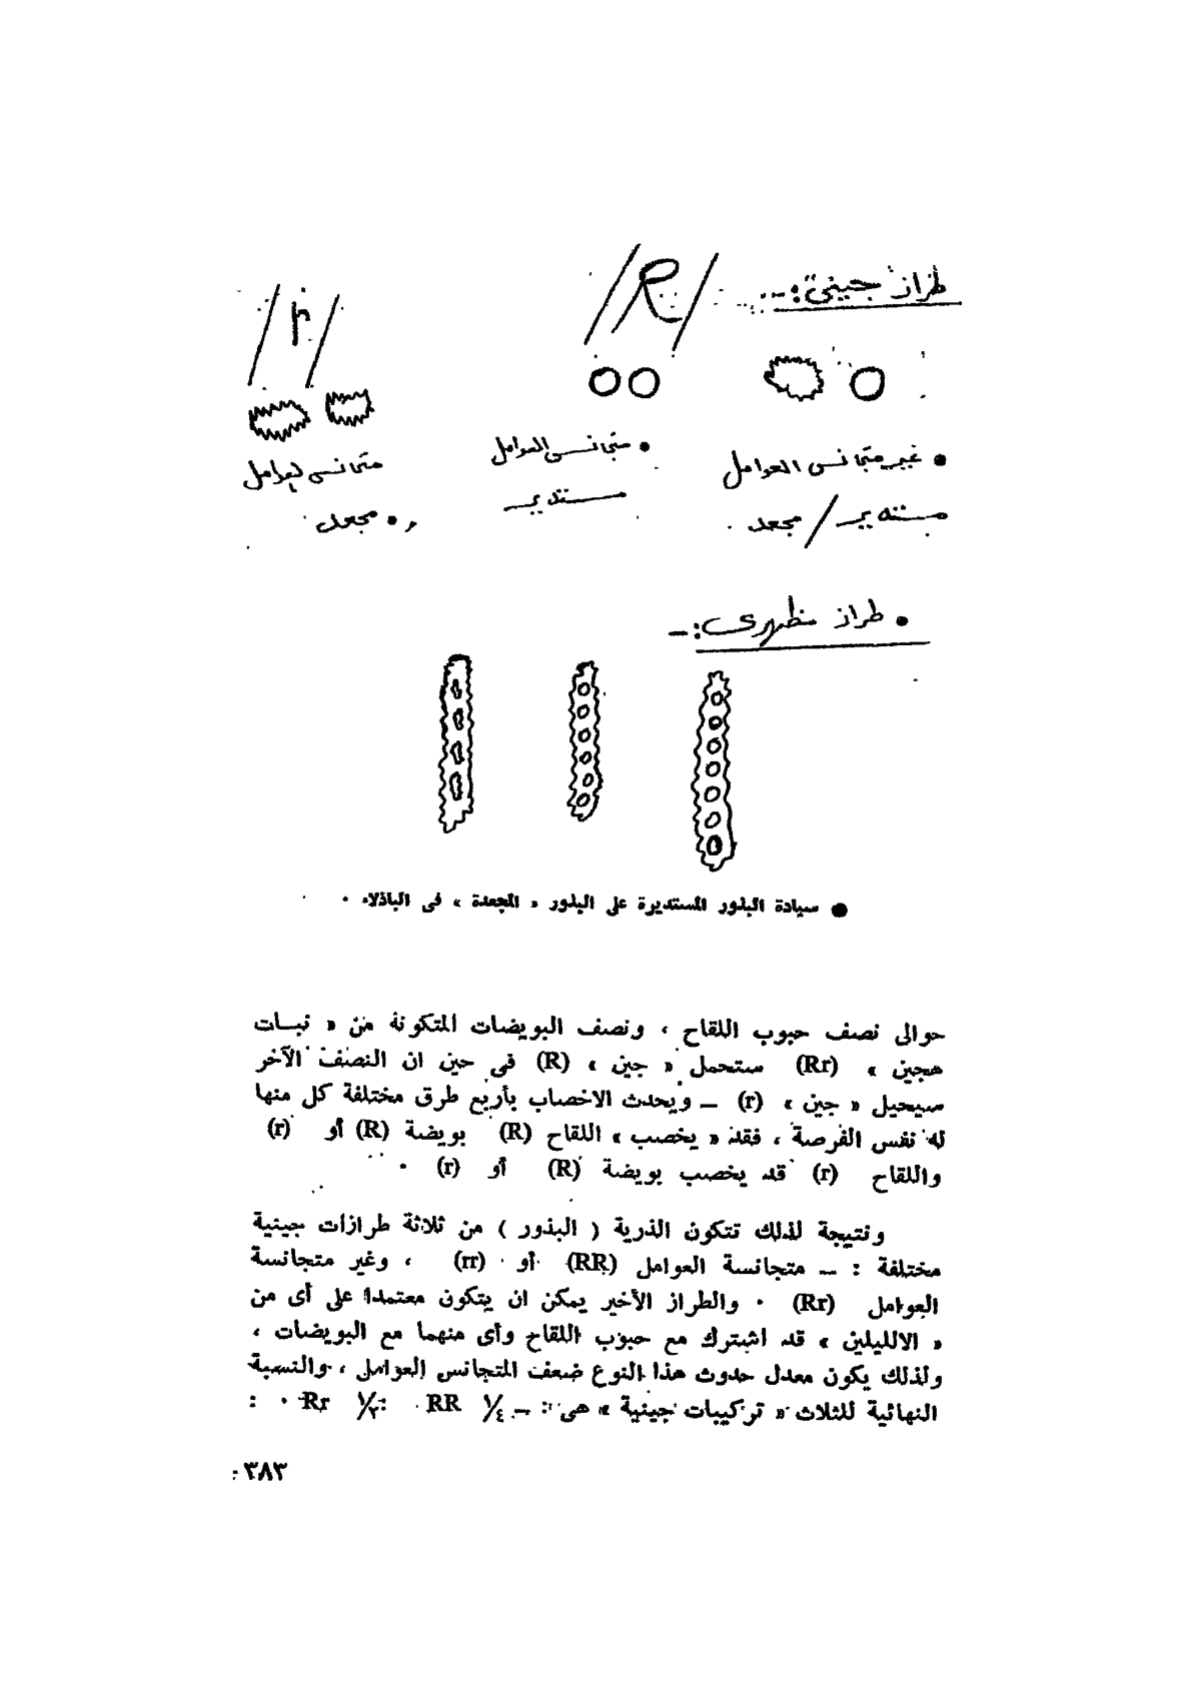 طراز جينى :ـ
R
r
• غير متجانس العوامل
مستدير / مجعد
• متجانس العوامل
مستدير
متجانس لعوامل
• مجعد
• طراز مظهرى :ـ
● سيادة البذور المستديرة على البذور « المجعدة » فى الباذلاء ٠
حوالى نصف حبوب اللقاح ، ونصف البويضات المتكونة من « نبـات
هجين » (Rr) ستحمل « جين » (R) فى حين ان النصف الآخر
سيحيل « جين » (r) ــ ويحدث الاخصاب بأربع طرق مختلفة كل منها
له نفس الفرصة ، فقد « يخصب » اللقاح (R) بويضة (R) أو (r)
واللقاح (r) قد يخصب بويضة (R) أو (r) ٠
ونتيجة لذلك تتكون الذرية ( البذور ) من ثلاثة طرازات جينية
مختلفة : ــ متجانسة العوامل (RR) أو (rr) ، وغير متجانسة
العوامل (Rr) ٠ والطراز الأخير يمكن ان يتكون معتمدا على أى من
« الالليلين » قد اشترك مع حبوب اللقاح وأى منهما مع البويضات ،
ولذلك يكون معدل حدوث هذا النوع ضعف المتجانس العوامل ، والنسبة
النهائية للثلاث « تركيبات جينية » هى : ــ ١/٤ RR : ١/٢ Rr ٠ :
٣٨٣